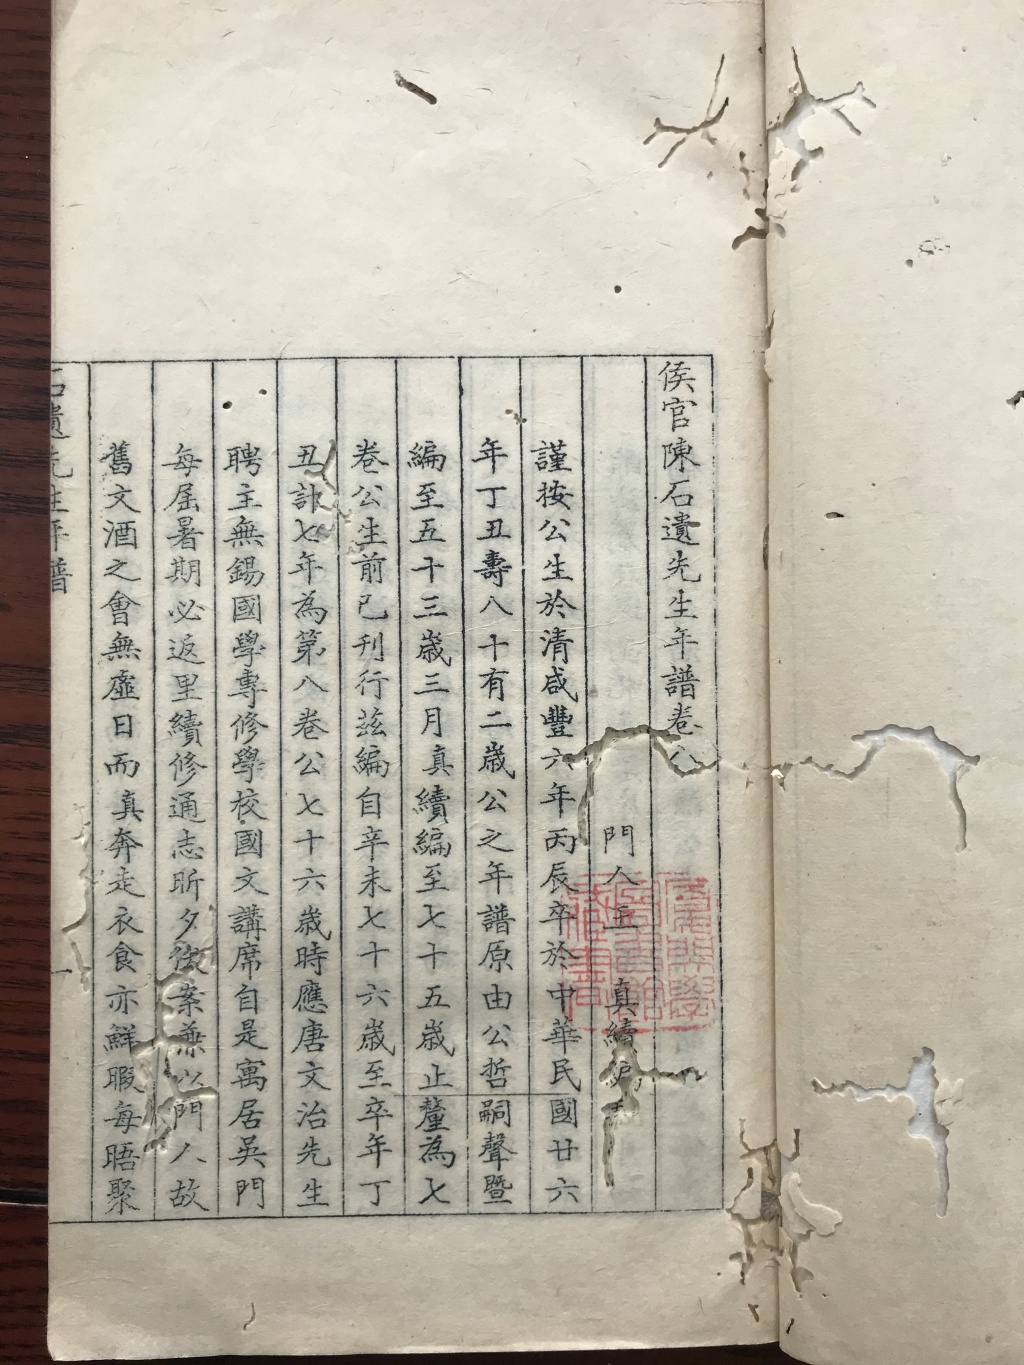 侯官陳石遺先生年譜卷八
門人王 真續編
謹按公生於清咸豐六年丙辰卒於中華民國廿六
年丁丑壽八十有二歲公之年譜原由公哲嗣聲暨
編至五十三歲三月真續編至七十五歲止釐為七
卷公生前已刊行茲編自辛未七十六歲至卒年丁
丑訃七年為第八卷公七十六歲時應唐文治先生
聘主無錫國學專修學校國文講席自是寓居吳門
每屆暑期必返里續修通志昕夕案兼以門人故
舊文酒之會無虛日而真奔走衣食亦鮮暇每晤聚
石遺先生年譜
一